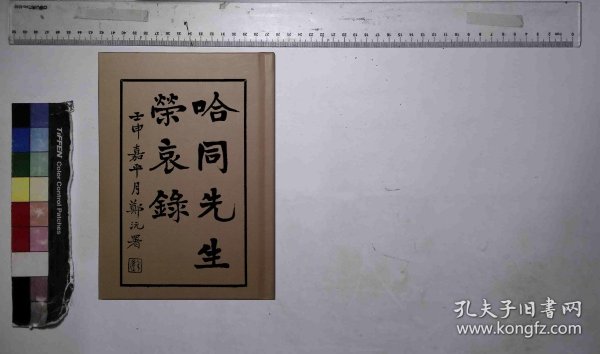 哈同先生
榮哀錄
壬申嘉平月鄭沅署
TIFFEN Color Control Patches
孔夫子旧书网
www.kongfz.com